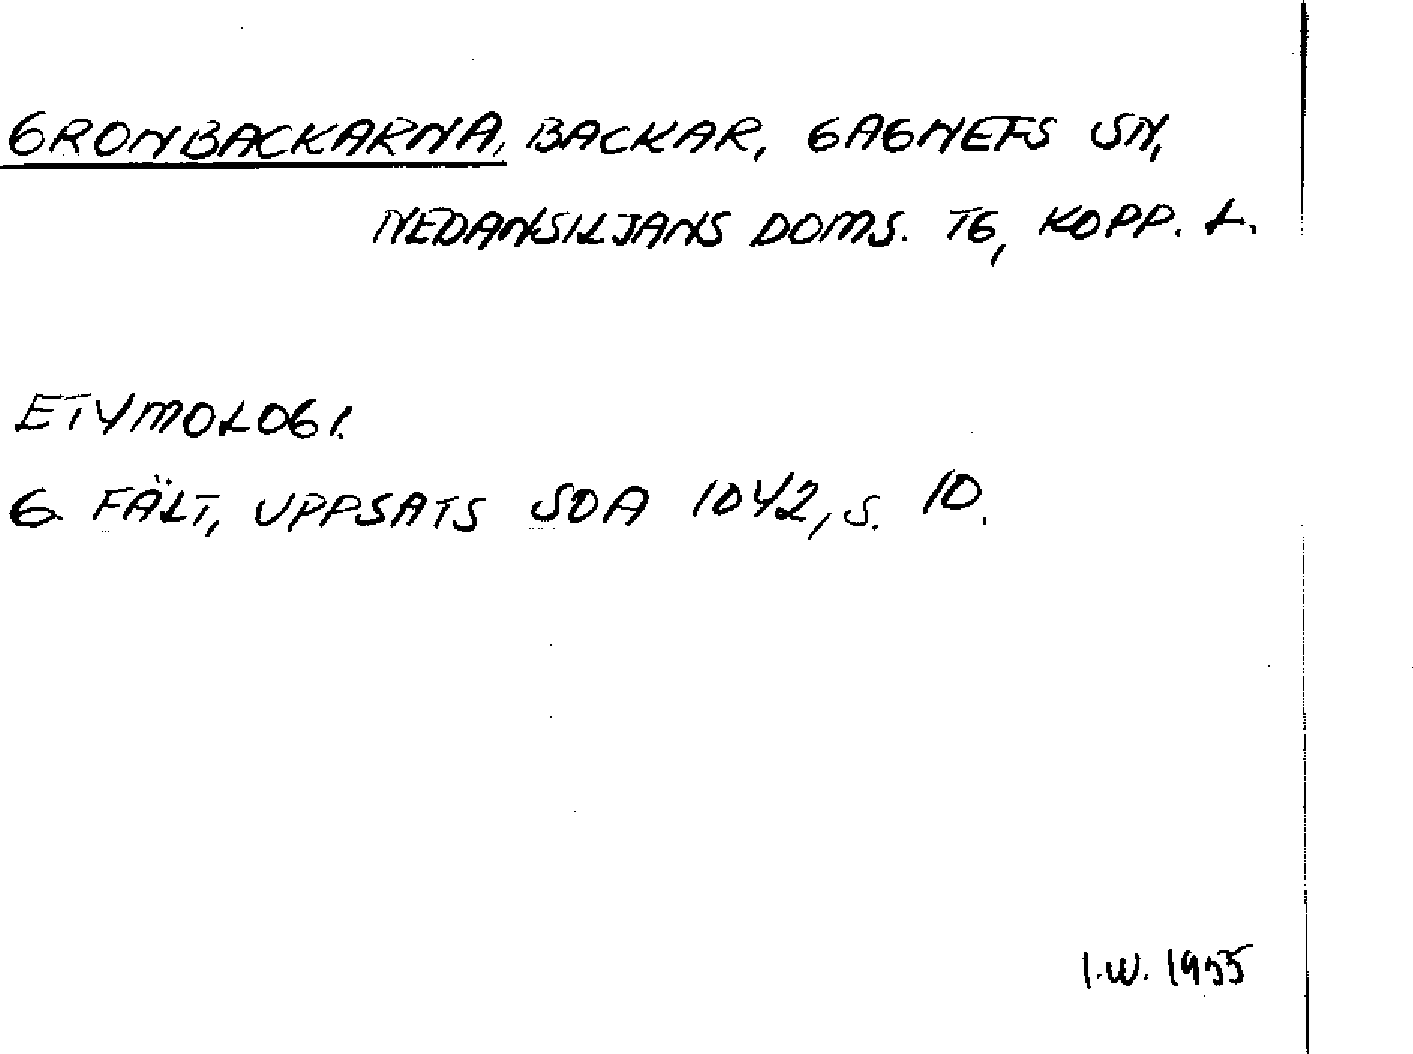 GRONBACKARNA, BACKAR, GAGNEFS SN,
NEDANSILJANS DOMS. TG, KOPP. L.
ETYMOLOGI.
G. FÄLT, UPPSATS SOA 1042, S. 10.
I.W. 1955